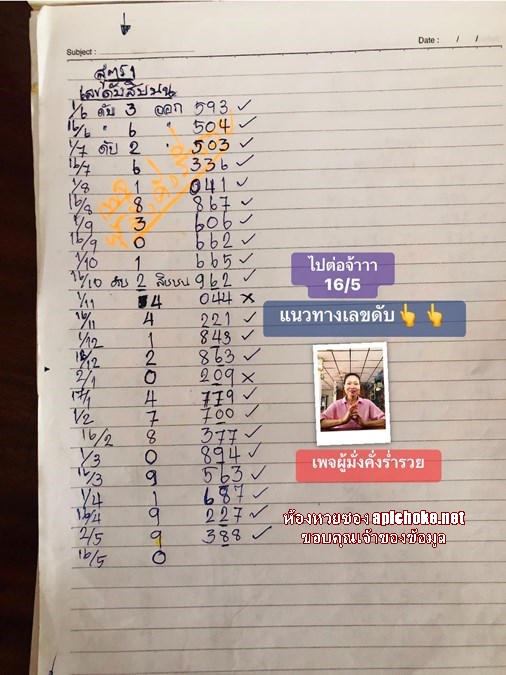 Subject :
Date : / /
สูตร 1
เลขดับสิบบน
1/6 ดับ 3 ออก 593 ✓
16/6 " 6 " 504 ✓
1/7 ดับ 2 " 503 ✓
16/7 6 336 ✓
1/8 1 041 ✓
16/8 8 867 ✓
1/9 3 606 ✓
16/9 0 662 ✓
1/10 1 665 ✓
16/10 ดับ 2 สิบบน 962 ✓
1/11 4 044 ×
16/11 4 221 ✓
1/12 1 843 ✓
16/12 2 863 ✓
2/1 0 209 ×
17/1 4 779 ✓
1/2 7 700 ✓
16/2 8 377 ✓
1/3 0 894 ✓
16/3 9 563 ✓
1/4 1 687 ✓
16/4 9 227 ✓
2/5 9 388 ✓
16/5 0
ไปต่อจ้าาา
16/5
แนวทางเลขดับ👆👆
เพจผู้มั่งคั่งร่ำรวย
ห้องหวยของ aplchoke.net
ขอบคุณเจ้าของข้อมูล